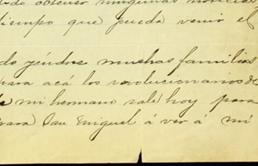 obtener ningunas noticias
tiempo que pueda venir el
do yéndose muchas familias
para acá los revolucionarios de
mi hermano salé hoy para
para San Miguel á vér á mi